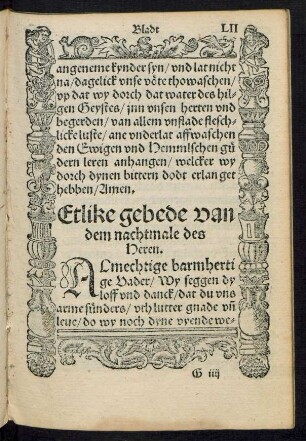 Bladt LII
angeneme kynder syn/ vnd lat nicht
na/ dagelick vnse võte tho waschen/
vp dat wy dorch dat water des hil-
gen Geystes/ jnn vnsen herten vnd
begerden/ van allem vnflade flesch-
licke luste/ ane vnderlat affwaschen
den Ewigen vnd Hemmlschen gů
dern leren anhangen/ welcker wy
dorch dynen bittern dodt erlanget
hebben/ Amen.
Etlike gebede van
dem nachtmale des
Heren.
ALmechtige barmherti
ge Vader/ Wy seggen dy
loff vnd danck/ dat du vns
arme sünders/ vth lutter gnade vñ
leue/ do wy noch dyne vyende we-
G iiij